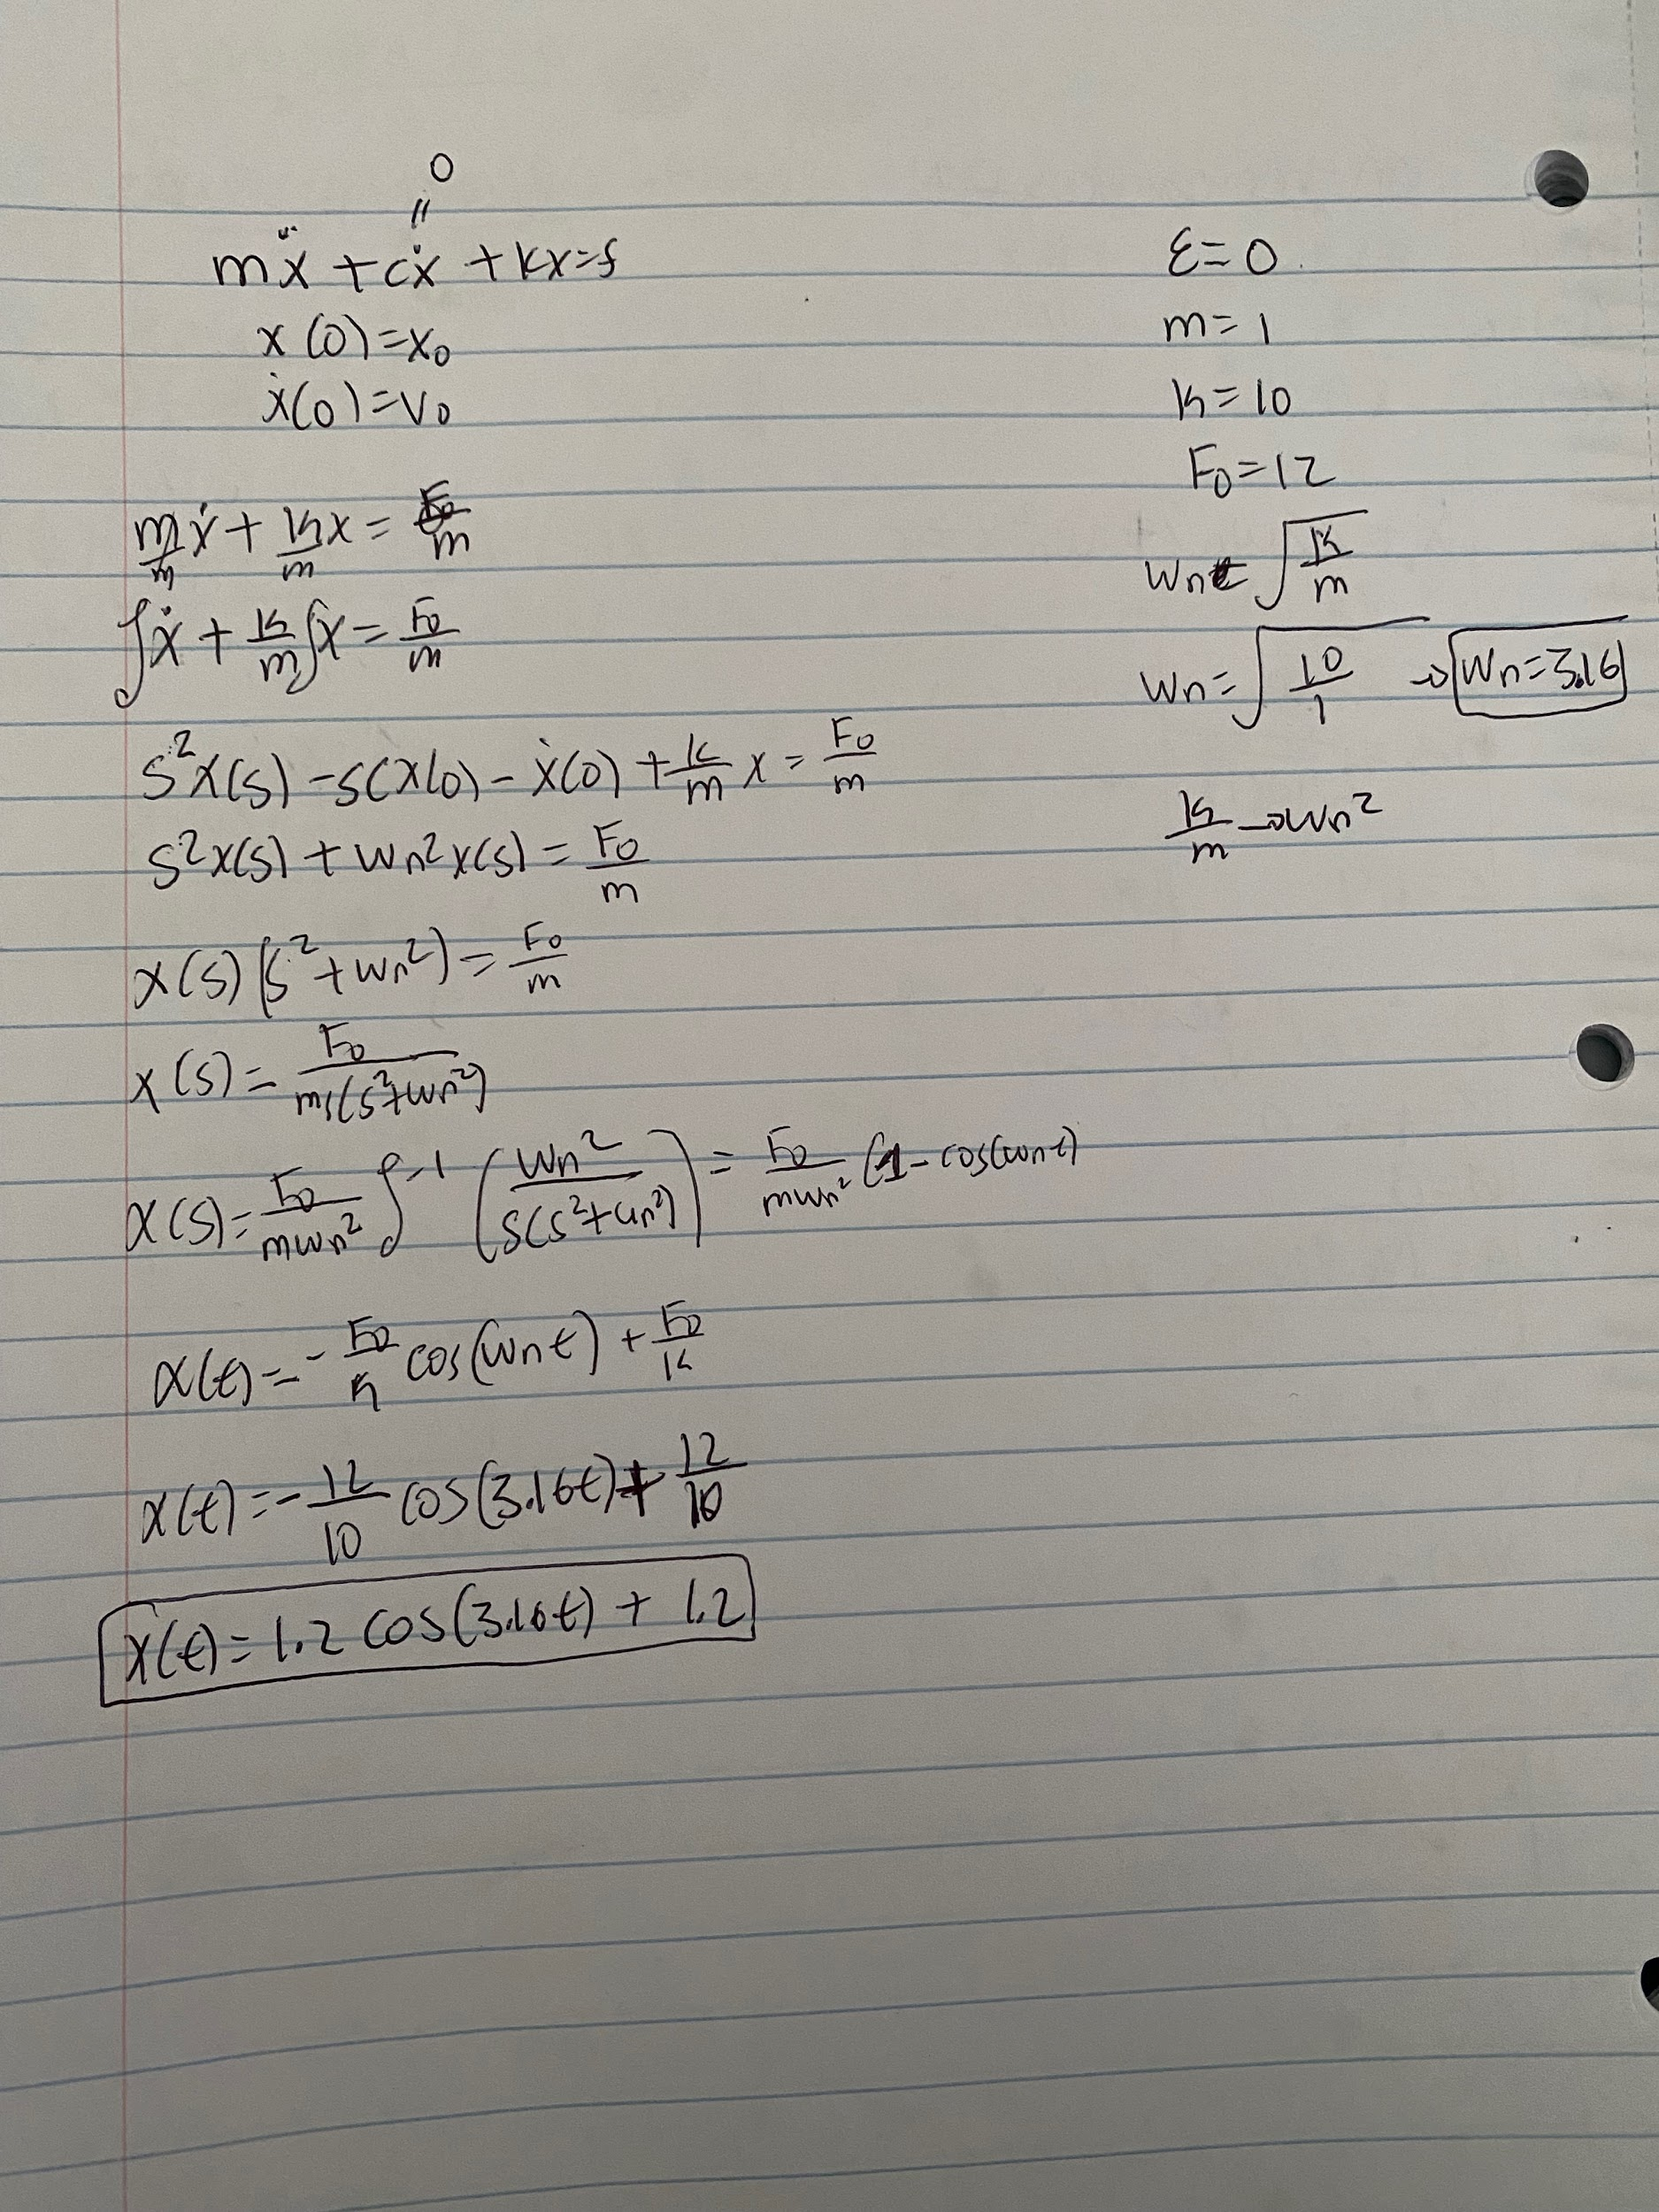 0
॥
mẍ + cẋ + kx = f
x(0) = x₀
ẋ(0) = v₀
m/m ẋ + k/m x = F₀/m
∫ẋ + k/m ∫x = F₀/m
s²X(s) - s(x(0) - ẋ(0) + k/m x = F₀/m
s²x(s) + wn²x(s) = F₀/m
x(s)(s² + wn²) = F₀/m
x(s) = F₀/ms(s²+wn²)
x(s) = F₀/mwn² ∫⁻¹ (wn²/s(s²+wn²)) = F₀/mwn² (1 - cos(wnt)
x(t) = - F₀/k cos(wnt) + F₀/k
x(t) = - 12/10 cos(3.16t) + 12/10
x(t) = 1.2 cos(3.16t) + 1.2
ε = 0
m = 1
k = 10
F₀ = 12
wn = √k/m
wn = √10/1 → wn = 3.16
k/m → wn²